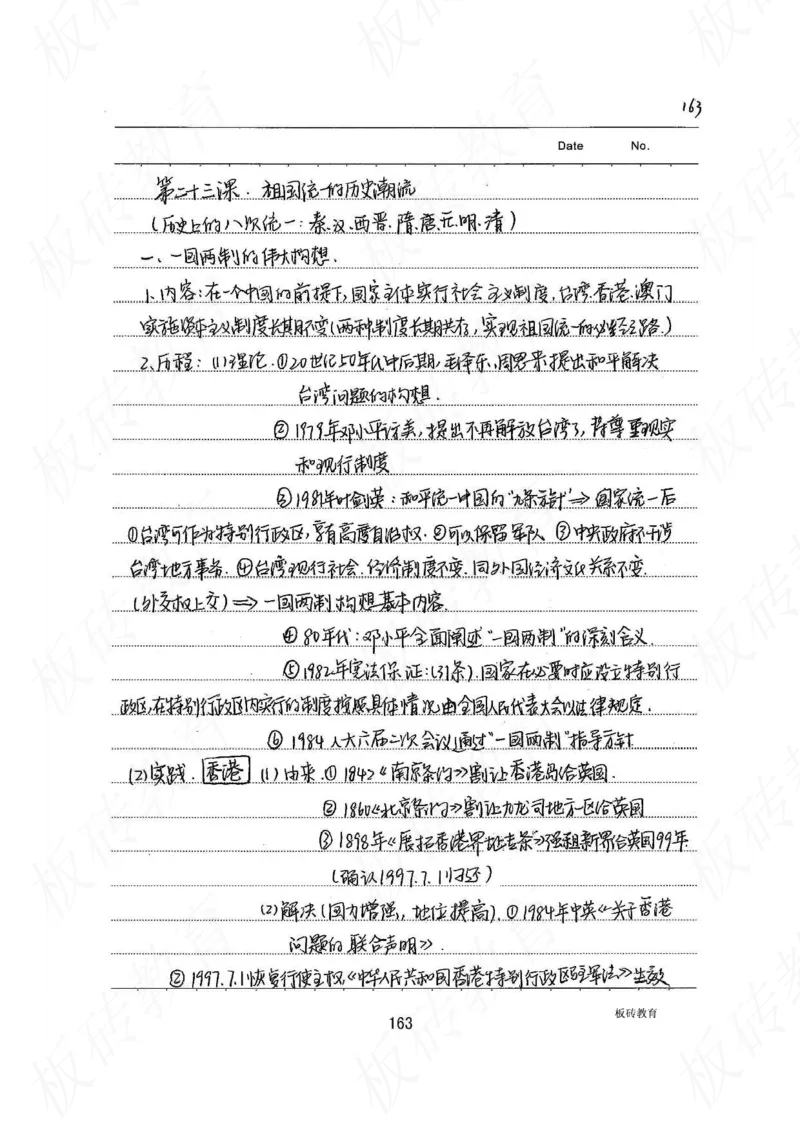 163
Date No.
第二十三课．祖国统一的历史潮流
(历史上的八次统一：秦、汉、西晋、隋、唐、元、明、清)
一、一国两制的伟大构想．
1、内容：在一个中国的前提下，国家主体实行社会主义制度，台湾、香港、澳门
实施资本主义制度长期不变(两种制度长期共存，实现祖国统一的必经之路．)
2、历程：(1)理论．①20世纪50年代中后期，毛泽东、周恩来提出和平解决
台湾问题的构想．
②1979年邓小平访美，提出不再解放台湾了，将尊重现实
和现行制度
③1981年叶剑英：和平统一中国的"九条方针"⇒国家统一后
①台湾可作为特别行政区，享有高度自治权．②可以保留军队 ③中央政府不干涉
台湾地方事务．④台湾现行社会．经济制度不变．同外国经济文化关系不变．
(外交权上交)⇒一国两制构想基本内容．
④80年代：邓小平全面阐述"一国两制"的深刻含义．
⑤1982年宪法保证：(31条)．国家在必要时应设立特别行
政区，在特别行政区内实行的制度按照具体情况由全国人民代表大会以法律规定．
⑥1984人大六届二次会议通过"一国两制"指导方针
(2)实践．香港 (1)由来．①1842《南京条约》割让香港岛给英国．
②1860《北京条约》割让九龙司地方一区给英国
③1898年《展拓香港界址专条》强租新界给英国99年
(确认1997.7.1归还)
(2)解决(国力增强，地位提高)．①1984年中英《关于香港
问题的联合声明》．
②1997.7.1恢复行使主权，《中华人民共和国香港特别行政区驻军法》生效
163
板砖教育
板砖教育